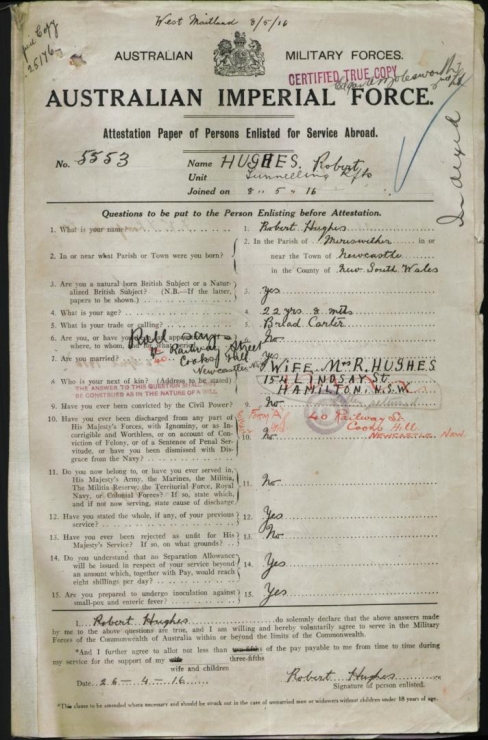 West Maitland 8/5/16
Copy
25176
AUSTRALIAN MILITARY FORCES.
CERTIFIED TRUE COPY
AUSTRALIAN IMPERIAL FORCE.
Attestation Paper of Persons Enlisted for Service Abroad.
Indexed
No. 5553 Name HUGHES, Robert
Unit Tunnelling Rfts
Joined on 8 . 5 . 16
Questions to be put to the Person Enlisting before Attestation.
1. What is your name? 1. Robert Hughes
2. In or near what Parish or Town were you born? 2. In the Parish of Merewether in or
near the Town of Newcastle
in the County of New South Wales
3. Are you a natural born British Subject or a Natur-
alized British Subject? (N.B.—If the latter,
papers to be shown.) 3. Yes
4. What is your age? 4. 22 yrs 8 mths
5. What is your trade or calling? 5. Bread Carter
6. Are you, or have you been an apprentice? If so,
where, to whom, 6. No
Railway Street
Cooks Hill
Newcastle
7. Are you married? 7. Yes
8. Who is your next of kin? (Address to be stated) 8. WIFE MRS R. HUGHES
154 LINDSAY St.
HAMILTON. N.S.W.
THE ANSWER TO THIS QUESTION
BE CONSTRUED AS IN THE NATURE OF A WILL
40 Railway St
Cooks Hill
NEWCASTLE NSW.
9. Have you ever been convicted by the Civil Power? 9. No
10. Have you ever been discharged from any part of
His Majesty's Forces, with Ignominy, or as In-
corrigible and Worthless, or on account of Con-
viction of Felony, or of a Sentence of Penal Ser-
vitude, or have you been Dismissed with Dis-
grace from the Navy? 10. No
11. Do you now belong to, or have you ever served in,
His Majesty's Army, the Marines, the Militia,
The Militia Reserve, the Territorial Force, Royal
Navy, or Colonial Forces? If so, state which,
and if not now serving, state cause of discharge 11. No
12. Have you stated the whole, if any, of your previous
service? 12. Yes
13. Have you ever been rejected as unfit for His
Majesty's Service? If so, on what grounds? 13. No
14. Do you understand that no Separation Allowance
will be issued in respect of your service beyond
an amount which, together with Pay, would reach
eight shillings per day? 14. Yes
15. Are you prepared to undergo inoculation against
small-pox and enteric fever? 15. Yes
I, Robert Hughes do solemnly declare that the above answers made
by me to the above questions are true, and I am willing and hereby voluntarily agree to serve in the Military
Forces of the Commonwealth of Australia within or beyond the limits of the Commonwealth.
*And I further agree to allot not less than two-fifths of the pay payable to me from time to time during
three-fifths
my service for the support of my wife
wife and children
Date 26-4-16 Robert Hughes
Signature of person enlisted.
*This clause to be amended where necessary and should be struck out in the case of unmarried men or widowers without children under 18 years of age.